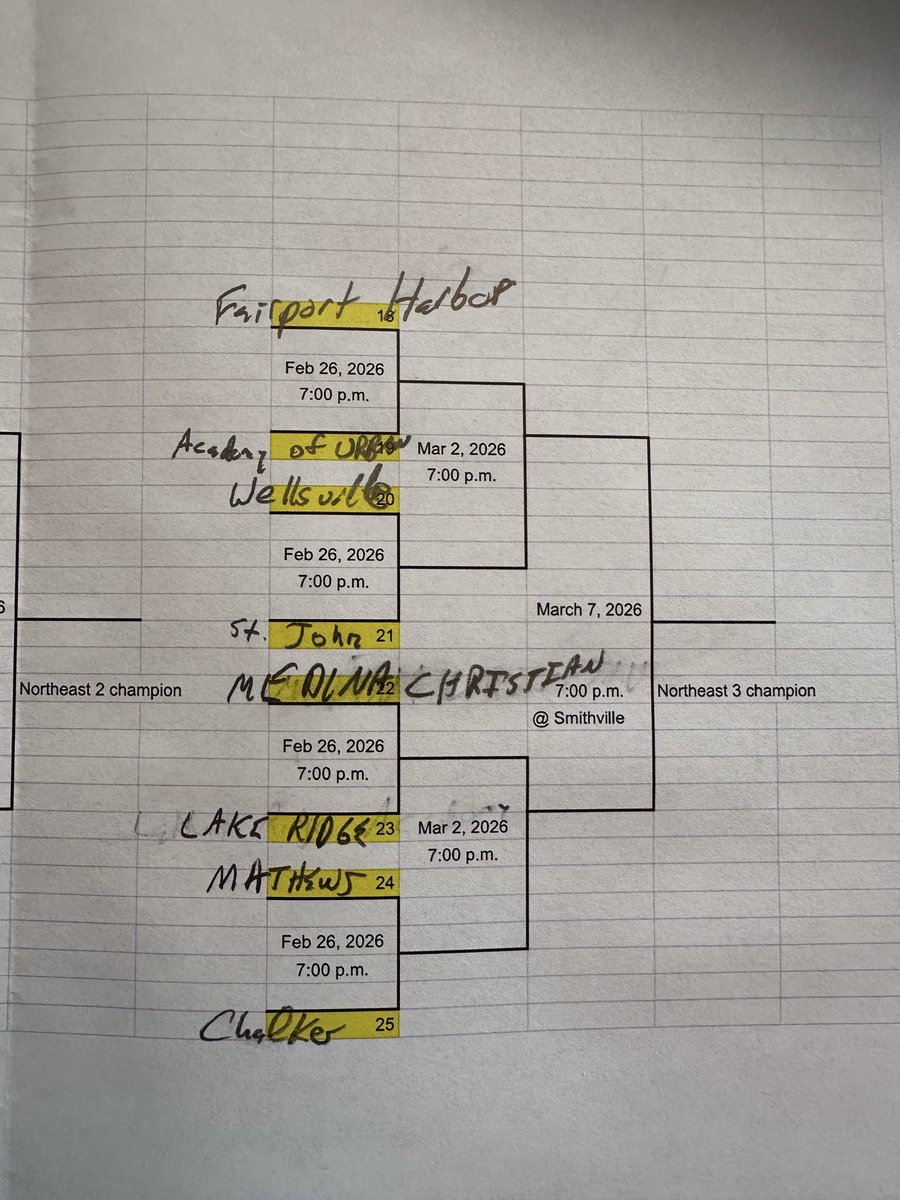 Fairport Harbor
18
Feb 26, 2026
7:00 p.m.
Academy of URBAN 19
Mar 2, 2026
7:00 p.m.
Wellsville 20
Feb 26, 2026
7:00 p.m.
6
March 7, 2026
St. John 21
Northeast 2 champion
MEDINA 22 CHRISTIAN
7:00 p.m.
@ Smithville
Northeast 3 champion
Feb 26, 2026
7:00 p.m.
LAKE RIDGE 23
Mar 2, 2026
7:00 p.m.
MATHEWS 24
Feb 26, 2026
7:00 p.m.
Chalker 25